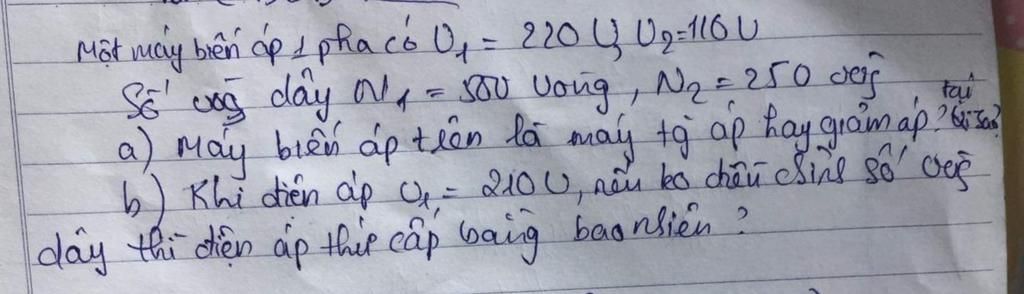 Một máy biến áp 1 pha có U1 = 220 U, U2=110 U
Số vòg dây N1 = 500 Vòng, N2 = 250 vòg
a) Máy biến áp trên là máy tg áp hay giảm áp? tại sao?
b) Khi điện áp U1 = 210 U, nếu ko chều chỉnh số vòg
dây thì điện áp thứ cấp bằng bao nhiên?